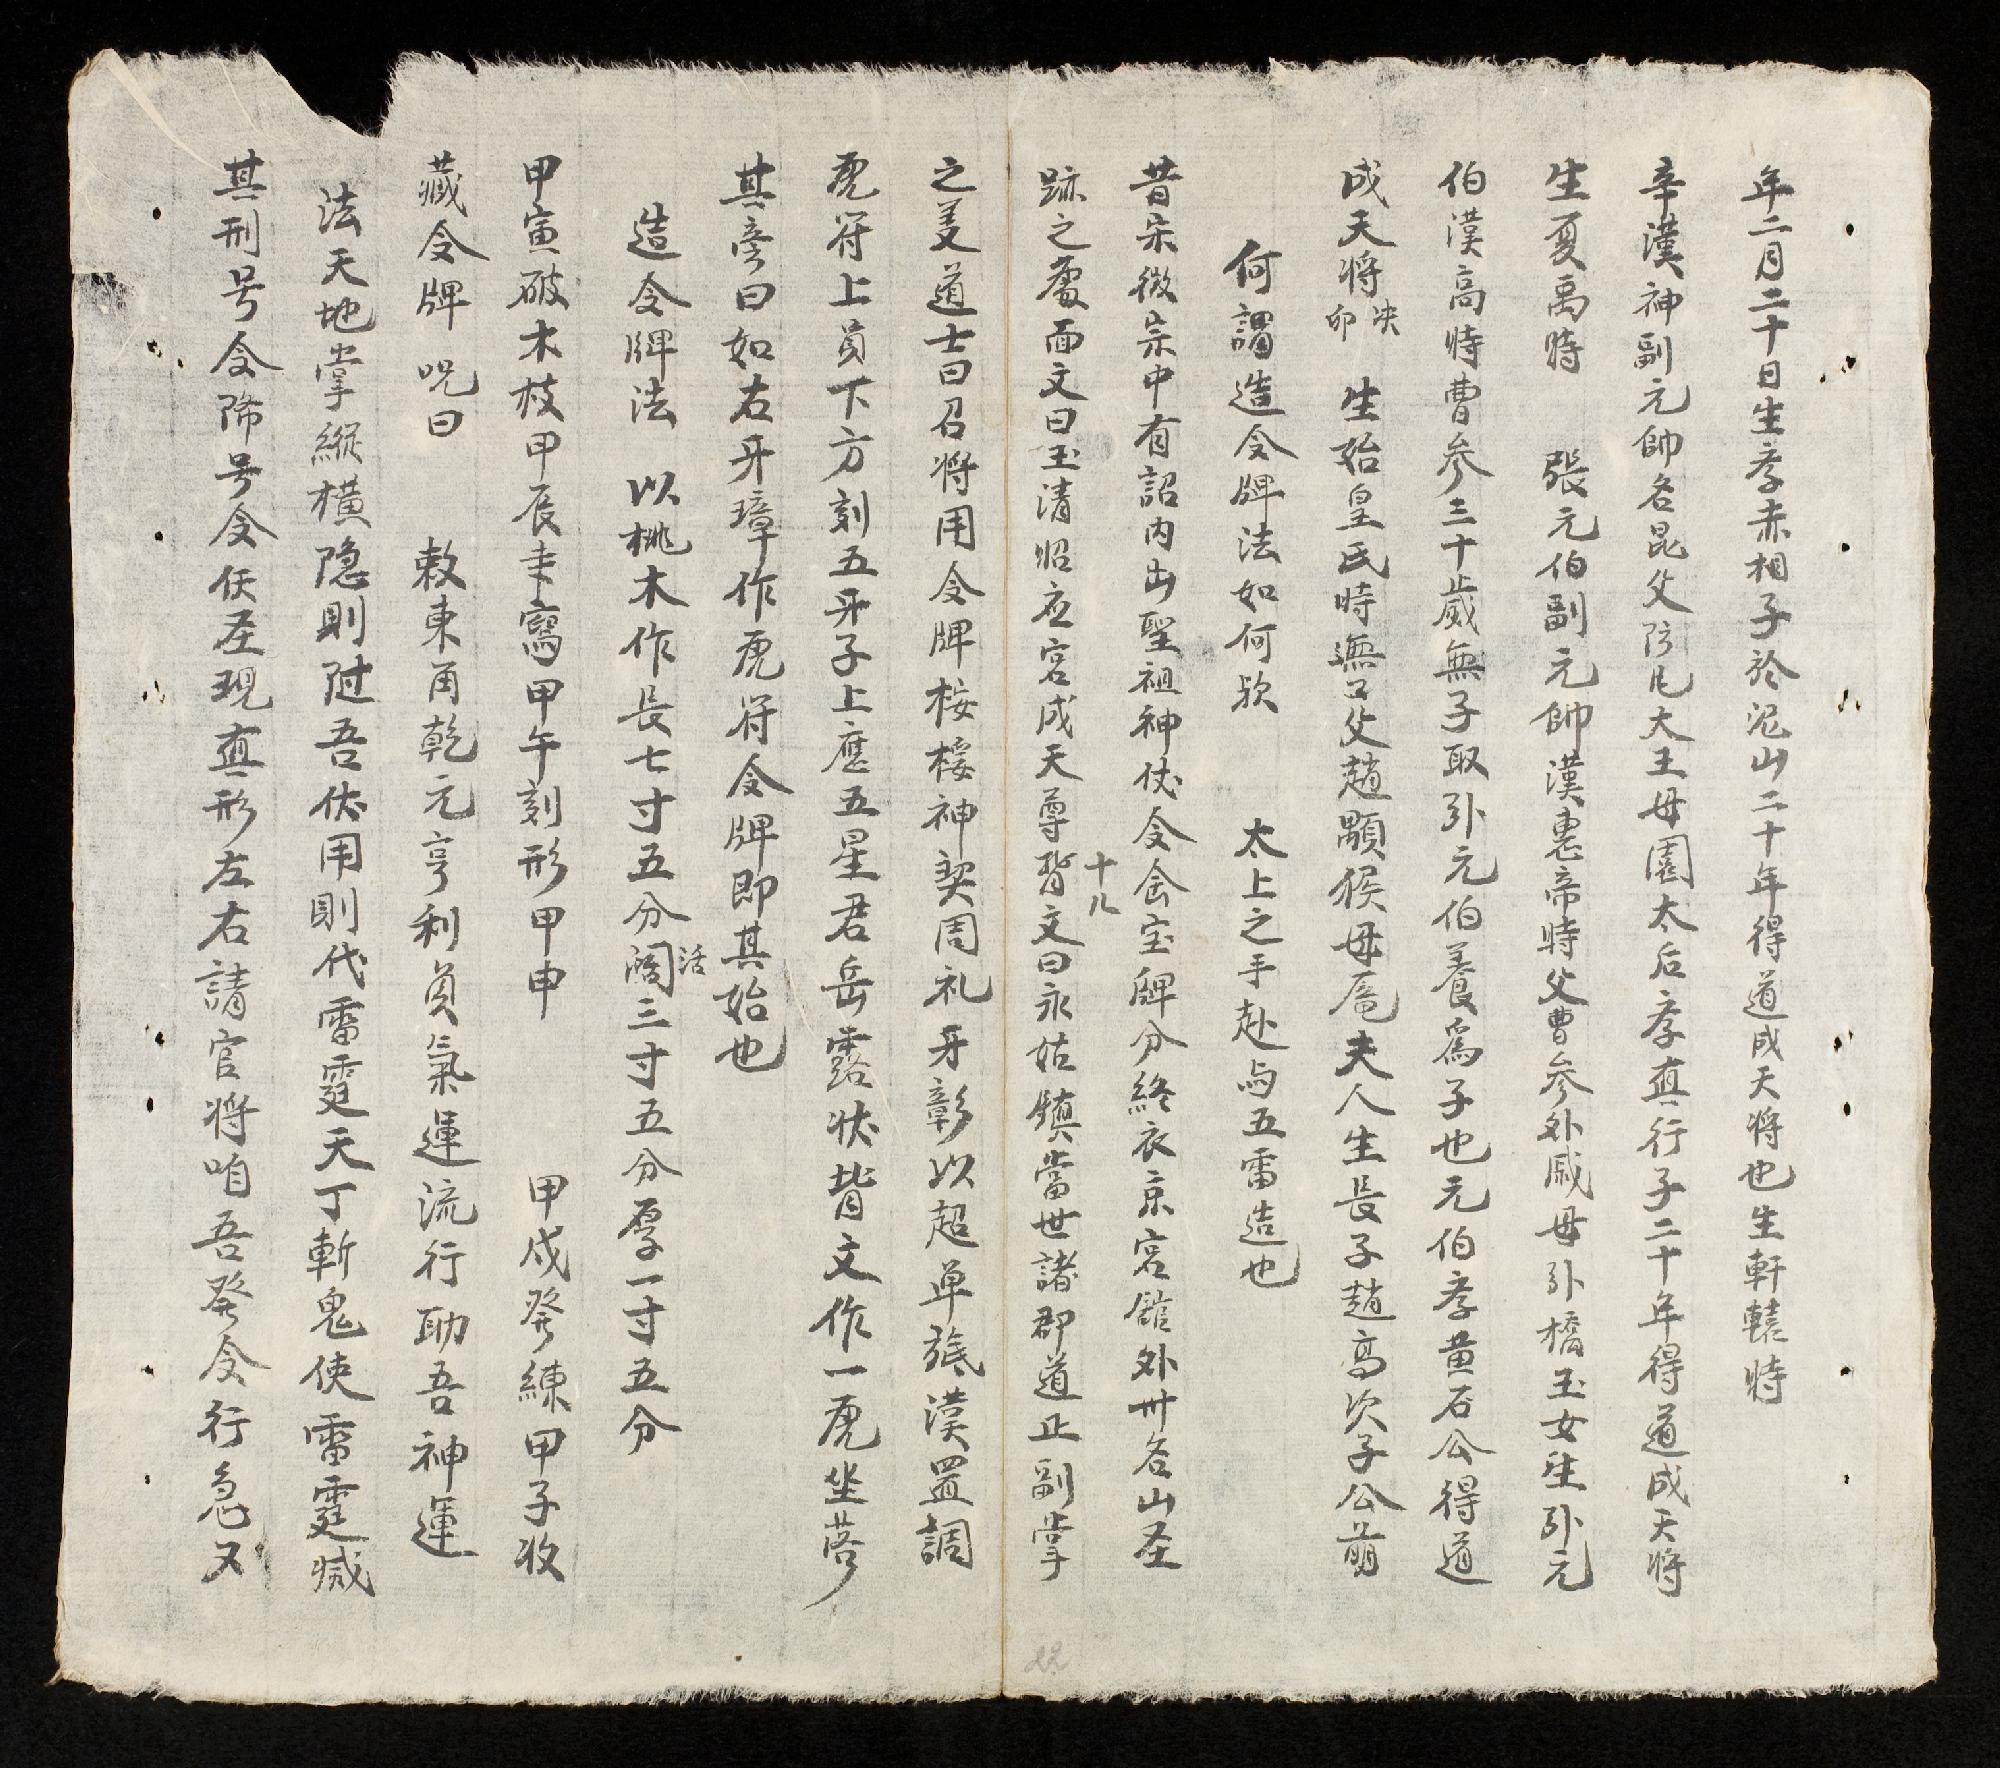 年二月二十日生孝赤相子於泥山二十年得道成天将也生軒轅時
辛漢神副元帥名昆父防凡大王母園太后孝真行子二十年得道成天将
生夏禹時　張元伯副元帥漢惠帝時父曹参外戚母卧橋玉女生卧元
伯漢高時曹参三十歲無子取卧元伯養為子也元伯孝黄石公得道
成天将决卯　生始皇氏時無又父趙顒猴母庵夫人生長子趙高次子公萌
何謂造令牌法如何欤　太上之手赴与五雷造也
昔宋微宗中有詔内出聖祖神伏令會宝牌分終衣京宫舘外卅名山圣
跡之處面文曰玉清昭应宫成天尊背文曰永姑鎮當世諸郡道正副掌
十八
之美道士曰召将用令牌桉桉神契周礼牙彰以超单㼵漢置調
虎符上員下方刻五牙子上應五星君岳露状背文作一虎坐蓉
其旁曰如右牙璋作虎符令牌即其始也
造令牌法　以桃木作長七寸五分濶活三寸五分厚一寸五分
甲寅破木枝甲辰書寫甲午刻形甲申　甲戍發練甲子收
藏令牌　咒曰　敕東甬乾元亨利貟氣運流行助吾神運
法天地掌縱横隐則附吾伏用則代雷霆天丁斬鬼使雷霆掝
其刑号令席号令伏圣現真形左右請官将咱吾發令行急又